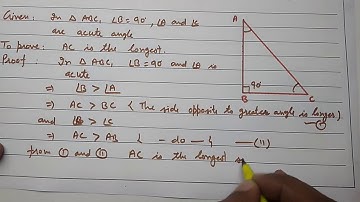 Given: In △ ABC, ∠B = 90°, ∠A and ∠C
are acute angle
To prove: AC is the longest.
Proof: In △ ABC, ∠B = 90° and ∠A is
acute
⇒ ∠B > ∠A
⇒ AC > BC { The side opposite to greater angle is longer} —(I)
and ∠B > ∠C
⇒ AC > AB { — do — } —(II)
from (I) and (II) AC is the longest s
A
90°
B
C